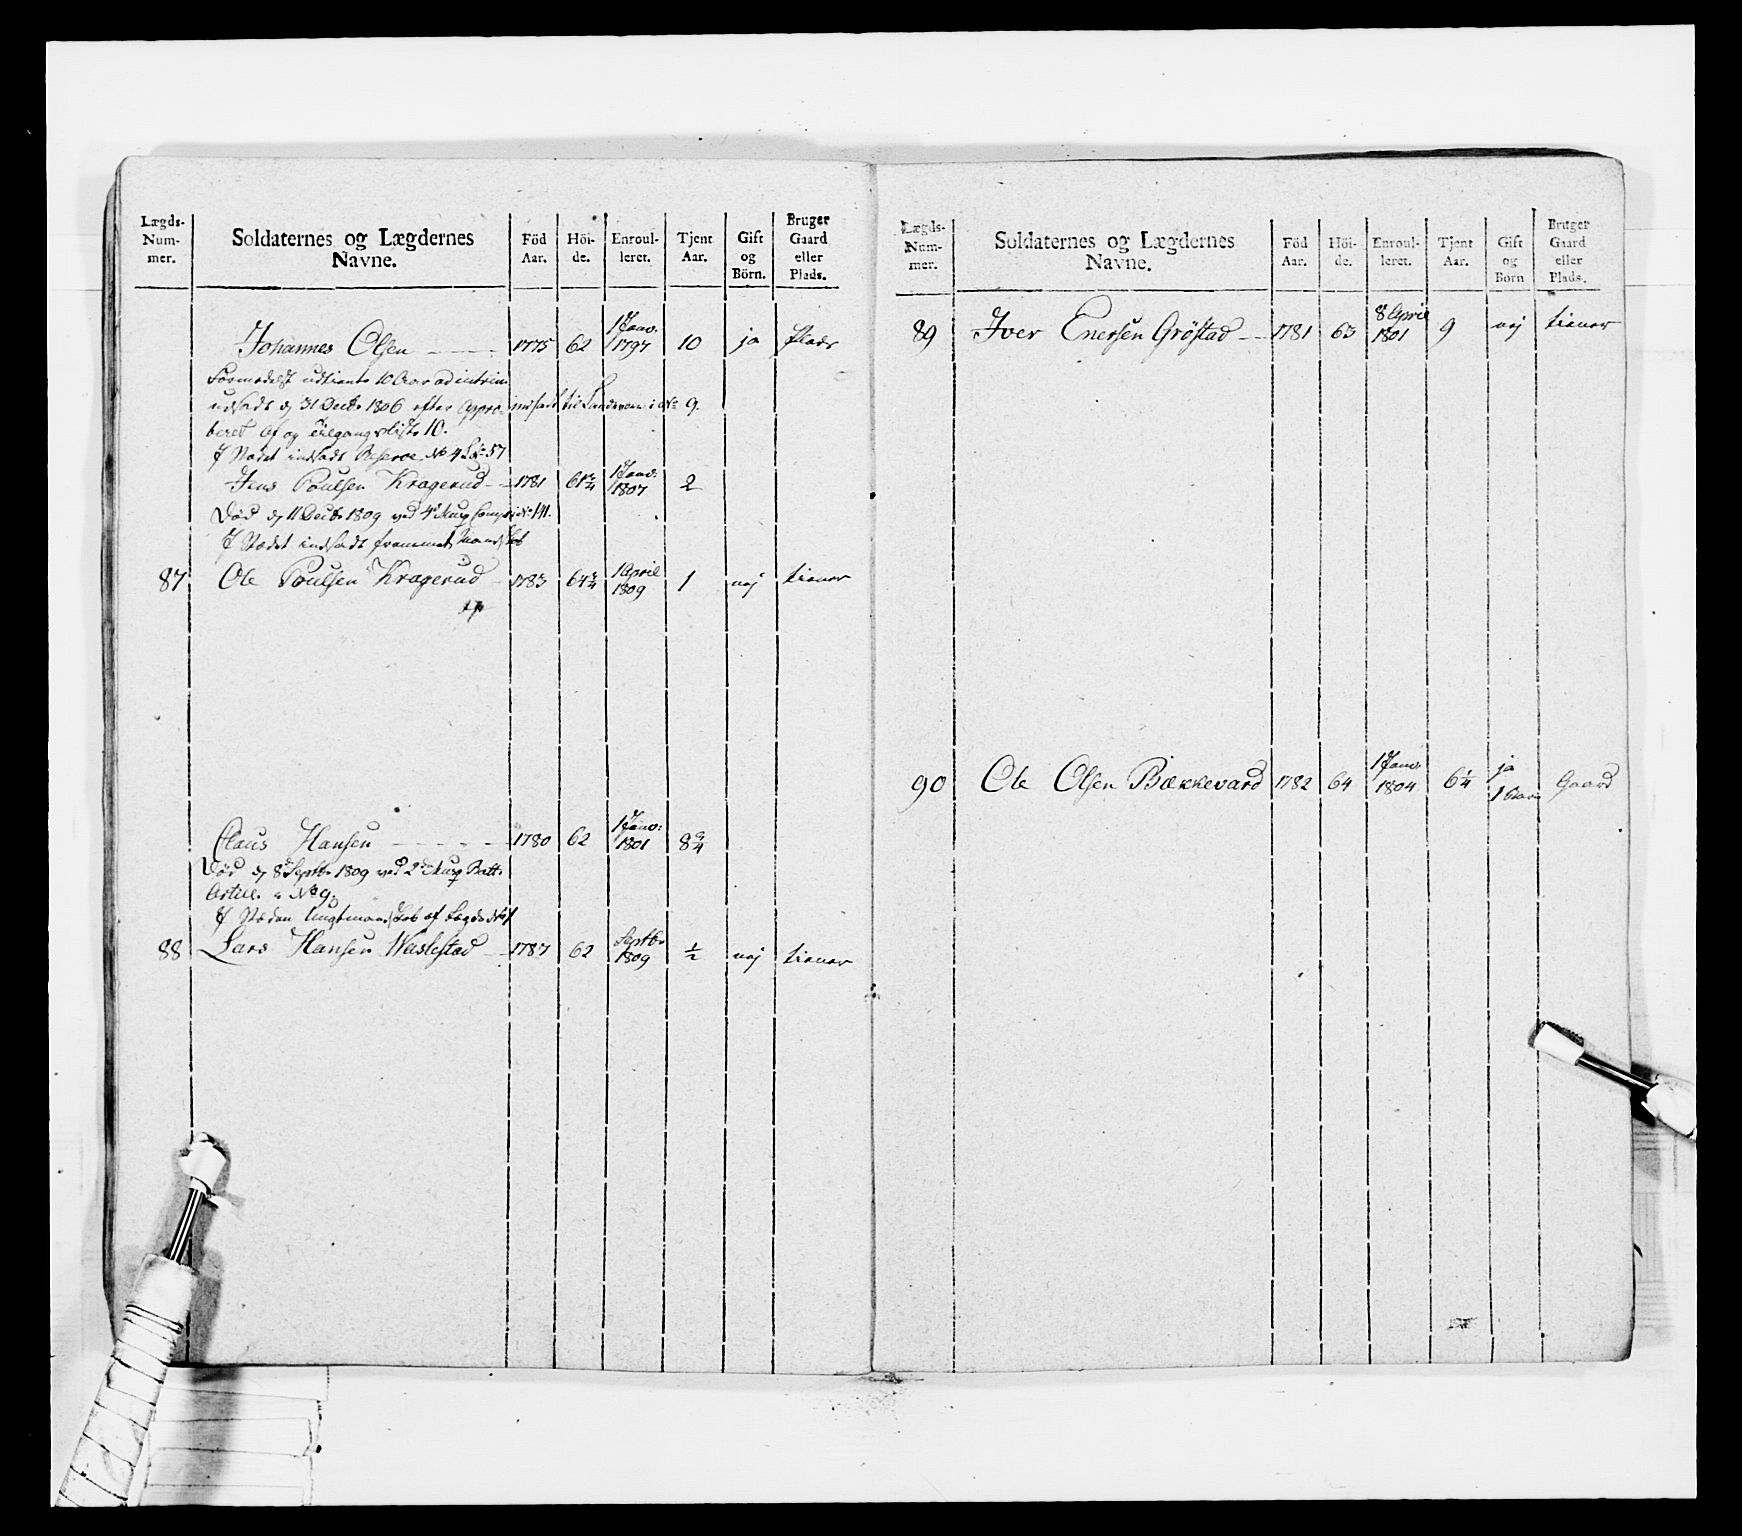 Lægds-Num-mer. Soldaternes og Lægdernes Navne. Föd Aar. Höi-de. Enroul-leret. Tjent Aar. Gift og Börn. Bruger Gaard eller Plads.
Johannes Olsen 1775 62 1 Janv: 1797 10 ja Plads
Formedelst udtiente 10 Aar ad intrim
udsadt d 31 Decbr 1806 efter Appro- indsadt til Landværn i No 9.
beret Af og tilgangsliste 10.
I Stædet indsadt Reserve No 4 Lit: 57
Jens Poulsen Kragerud 1781 61 3/4 1 Janv: 1807 2
Död d 11 Decbr 1809 ved 4de Musq Comp: No 141.
I Stædet indsadt fremmet Mandskab
87 Ole Poulsen Kragerud 1783 64 3/4 1 April 1809 1 nej tiener
Claus Hansen 1780 62 1 Janv: 1801 8 3/4
Död d 8 Septbr 1809 ved 2de Musq Batt:
Artill. No 9.
I Stæden Ungtmandskab af Lægd
88 Lars Hansen 1787 62 Septbr 1809 1/2 nej tiener
Lægds-Num-mer. Soldaternes og Lægdernes Navne. Föd Aar. Höi-de. Enroul-leret. Tjent Aar. Gift og Börn Bruger Gaard eller Plads.
89 Iver Enersen Gröstad 1781 63 8 April 1801 9 nej tiener
90 Ole Olsen Bækkevard 1782 64 1 Janv: 1804 6 1/4 ja 1 Barn Gaard